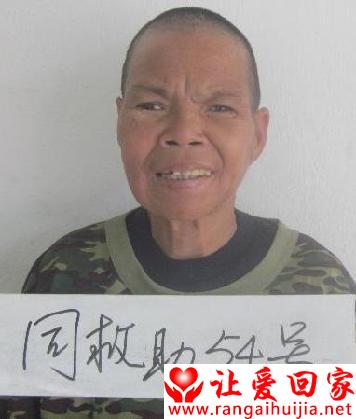 同救助54号
让爱回家
www.rangaihuijia.net